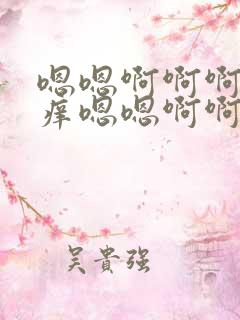 嗯嗯啊啊啊
痒嗯嗯啊啊
吴贵强